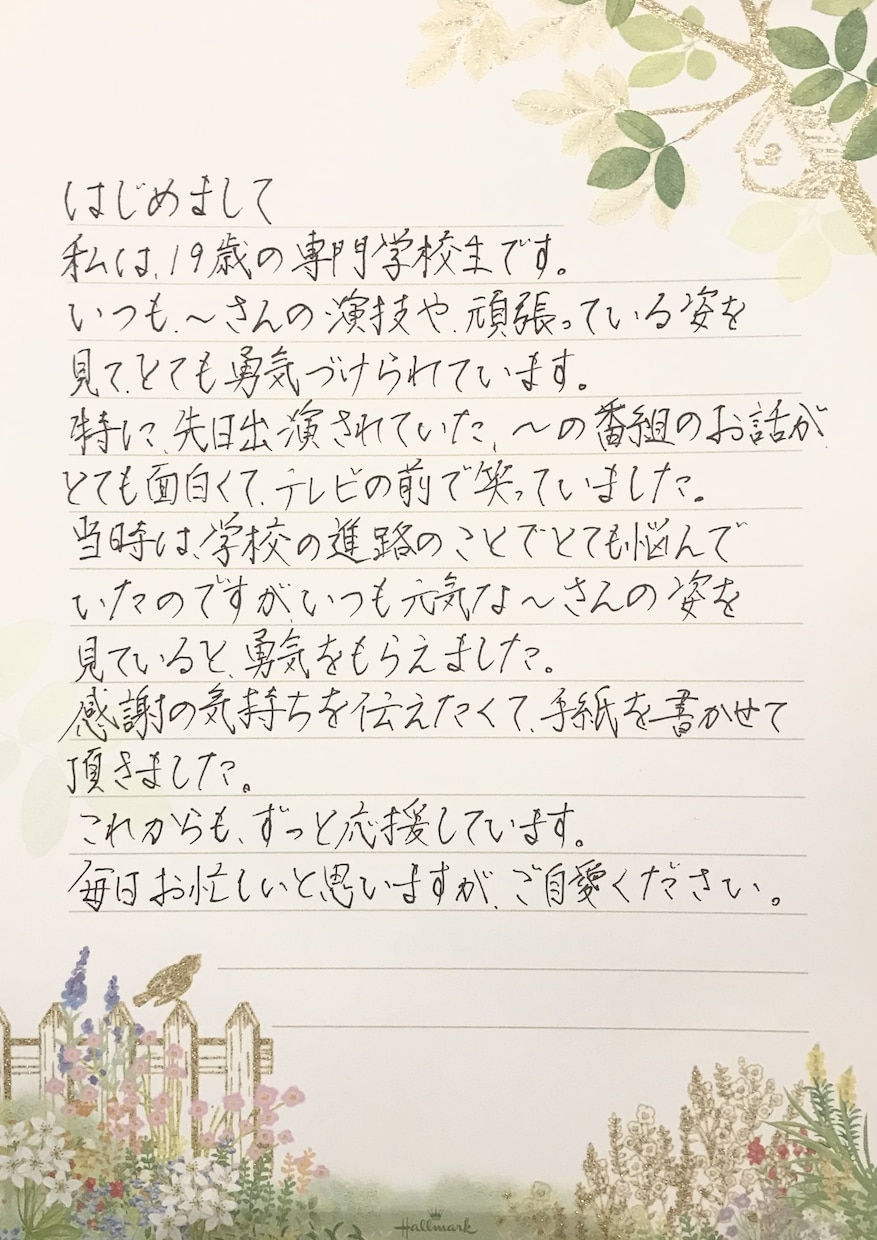 はじめまして
私は、19歳の専門学校生です。
いつも、～さんの演技や、頑張っている姿を
見て、とても勇気づけられています。
特に、先日出演されていた、～の番組のお話が、
とても面白くて、テレビの前で笑っていました。
当時は、学校の進路のことでとても悩んで
いたのですが、いつも元気な～さんの姿を
見ていると、勇気をもらえました。
感謝の気持ちを伝えたくて、手紙を書かせて
頂きました。
これからも、ずっと応援しています。
毎日お忙しいと思いますが、ご自愛ください。
Hallmark